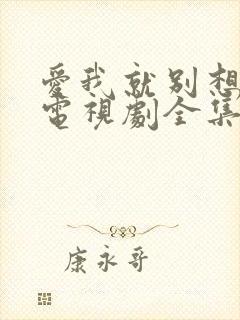 愛我就別想
電視劇全集
康永哥